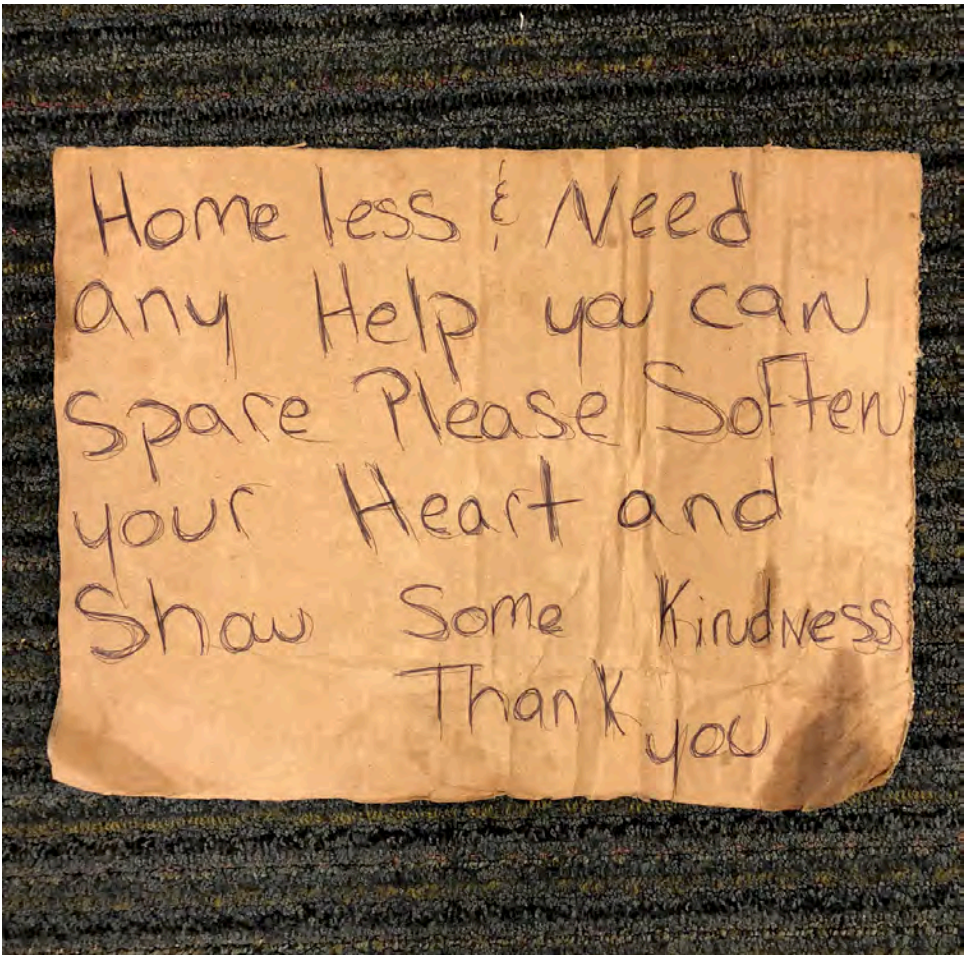 Homeless & Need
any Help you can
spare Please Soften
your Heart and
Show Some Kindness
Thank you